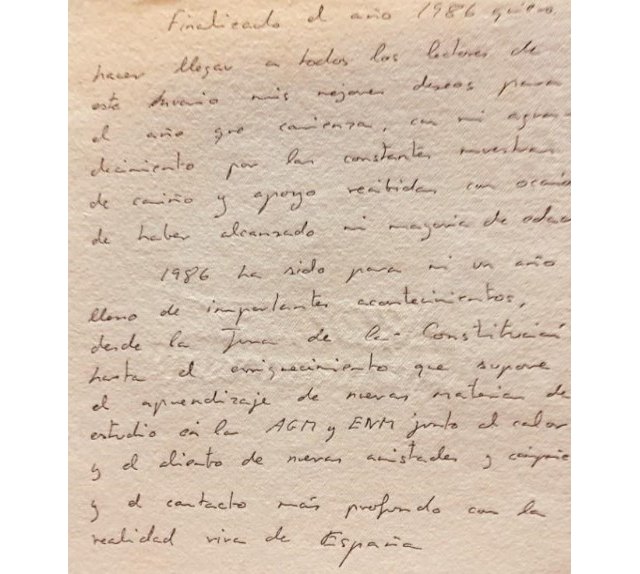 Finalizado el año 1986 quiero
hacer llegar a todos los lectores de
este diario mis mejores deseos para
el año que comienza, con mi agra-
decimiento por las constantes muestras
de cariño y apoyo recibidas con ocasió
de haber alcanzado mi mayoría de edad
1986 ha sido para mi un año
lleno de importantes acontecimientos,
desde la Jura de la Constitución
hasta el enriquecimiento que supone
el aprendizaje de nuevas materias de
estudio en la AGM y ENM junto al calor
y el aliento de nuevas amistades y
y el contacto más profundo con la
realidad viva de España